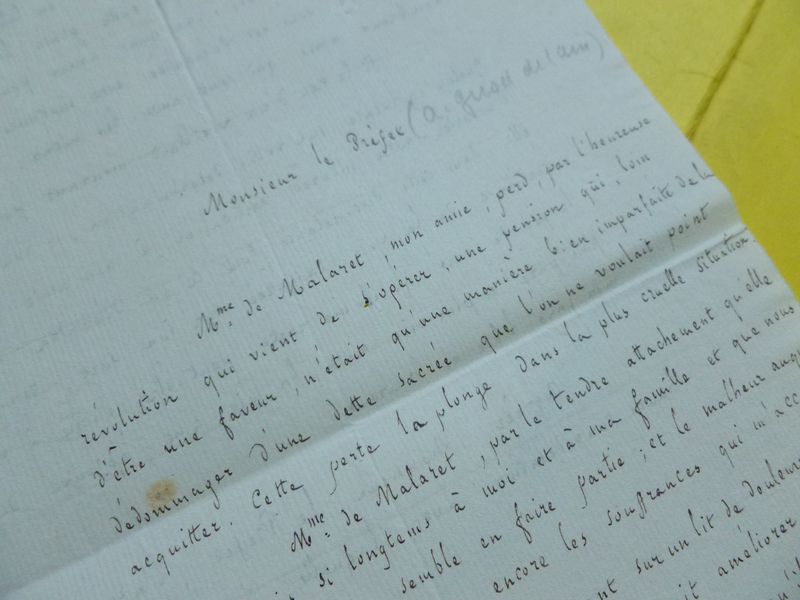 Monsieur le Préfet (a. girod de l'ain)
Mme de Malaret, mon amie, perd, par l'heureuse
révolution qui vient de s'opérer, une pension qui, loin
d'être une faveur, n'était qu'une manière bien imparfaite de la
dédommager d'une dette sacrée que l'on ne voulait point
acquitter. Cette perte la plonge dans la plus cruelle situation.
Mme de Malaret, par le tendre attachement qu'elle
si longtems à moi et à ma famille et que nous
semble en faire partie; et le malheur auq
encore les souffrances qui m'acc
sur un lit de douleur
améliorer